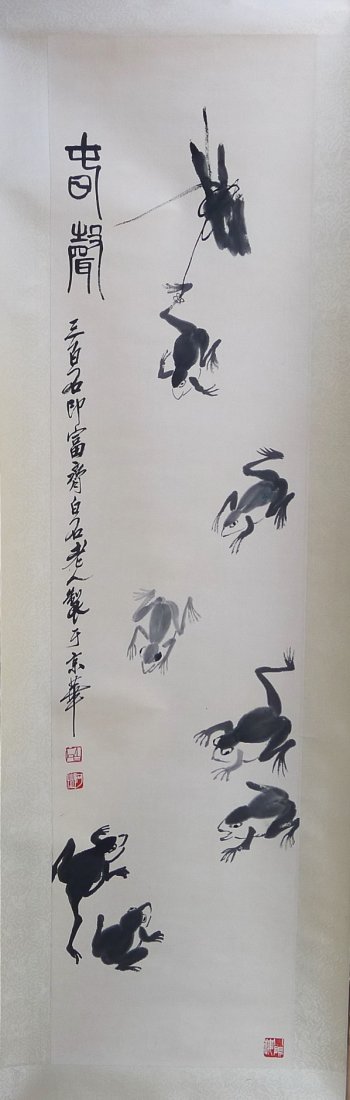 春聲
三百石印富翁齊白石老人製于京華